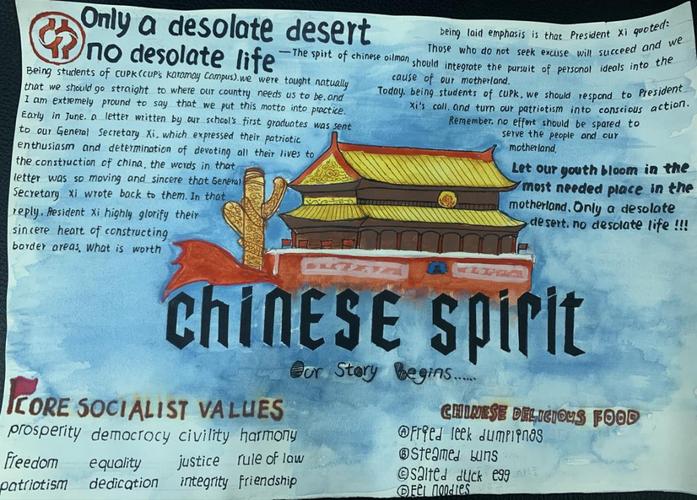 Only a desolate desert
no desolate life
—The spirt of chinese oilman
Being students of CUPK(CUP's Karamay Campus).we were tought naturally
that we should go straight to where our country needs us to be.and
I am extremely pround to say that we put this motto into practice.
Early in June, a letter written by our school's first graduates was sent
to our General Secretary Xi, which expressed their patriotic
enthusiasm and determination of devoting all their lives to
the construction of china, the words in that
letter was so moving and sincere that General
Secretary Xi wrote back to them. In that
reply. President Xi highly glorify their
sincere heart of constructing
border areas. What is worth
being laid emphasis is that President Xi quoted:
Those who do not seek excuse will succeed and we
should integrate the pursuit of personal ideals into the
cause of our motherland.
Today, being students of CUPK, we should respond to President
Xi's call, and turn our patriotism into conscious action.
Remember, no effort should be spared to
serve the people and our
motherland.
Let our youth bloom in the
most needed place in the
motherland. Only a desolate
desert. no desolate life !!!
CHINESE spirit
Our Story Begins......
CORE SOCIALIST VALUES
prosperity democracy civility harmony
freedom equality justice rule of law
patriotism dedication integrity friendship
CHINESE DELICIOUS FOOD
Ⓐ Fried leek dumplings
Ⓑ Steamed buns
Ⓒ Salted duck egg
Ⓓ Eel noodles